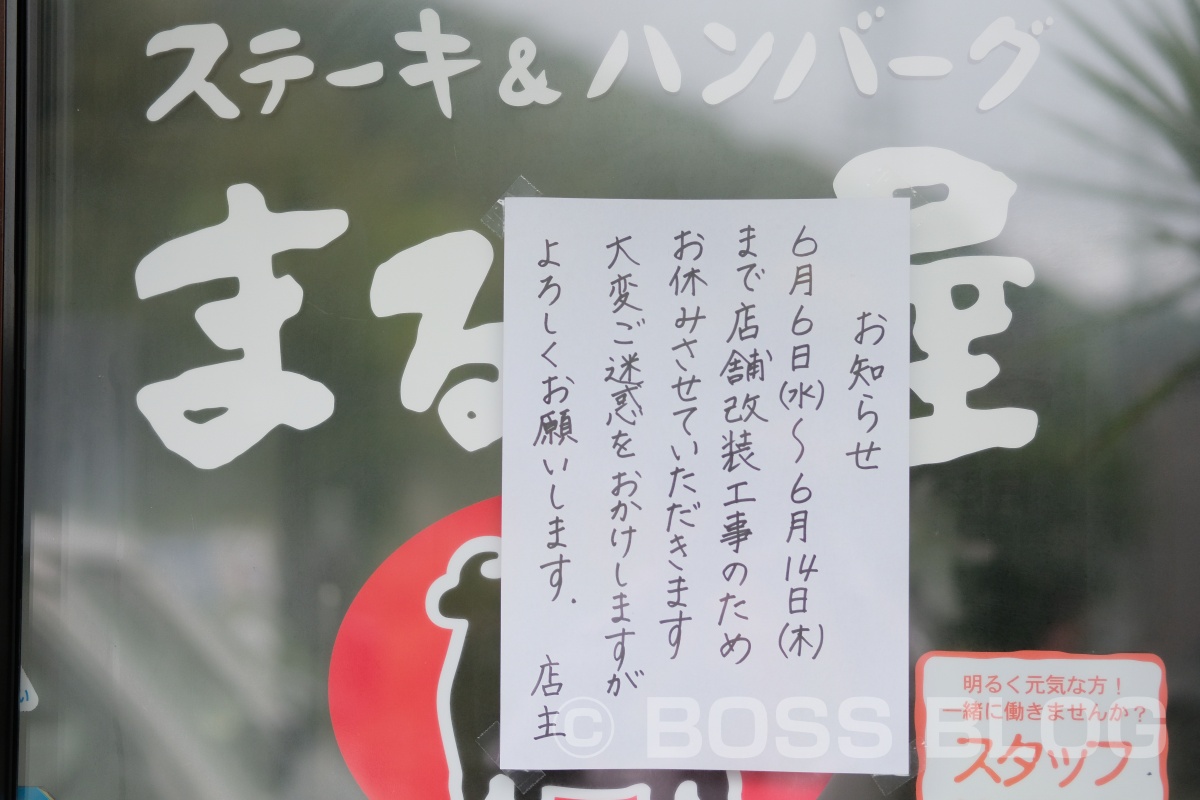 ステーキ&ハンバーグ
まる
屋
お知らせ
6月6日(水)〜6月14日(木)
まで店舗改装工事のため
お休みさせていただきます
大変ご迷惑をおかけしますが
よろしくお願いします.
店主
明るく元気な方!
一緒に働きませんか?
スタッフ
© BOSS BLOG